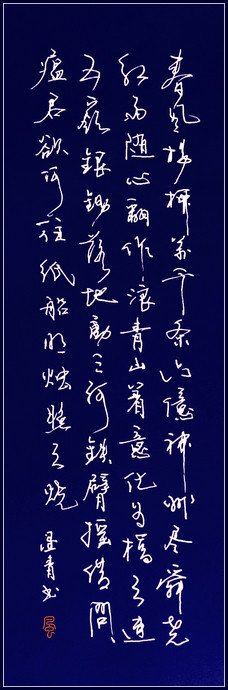 春风杨柳万千条六亿神州尽舜尧
红雨随心翻作浪青山着意化为桥天连
五岭银锄落地动三河铁臂摇借问
瘟君欲何往纸船明烛照天烧
墨青书